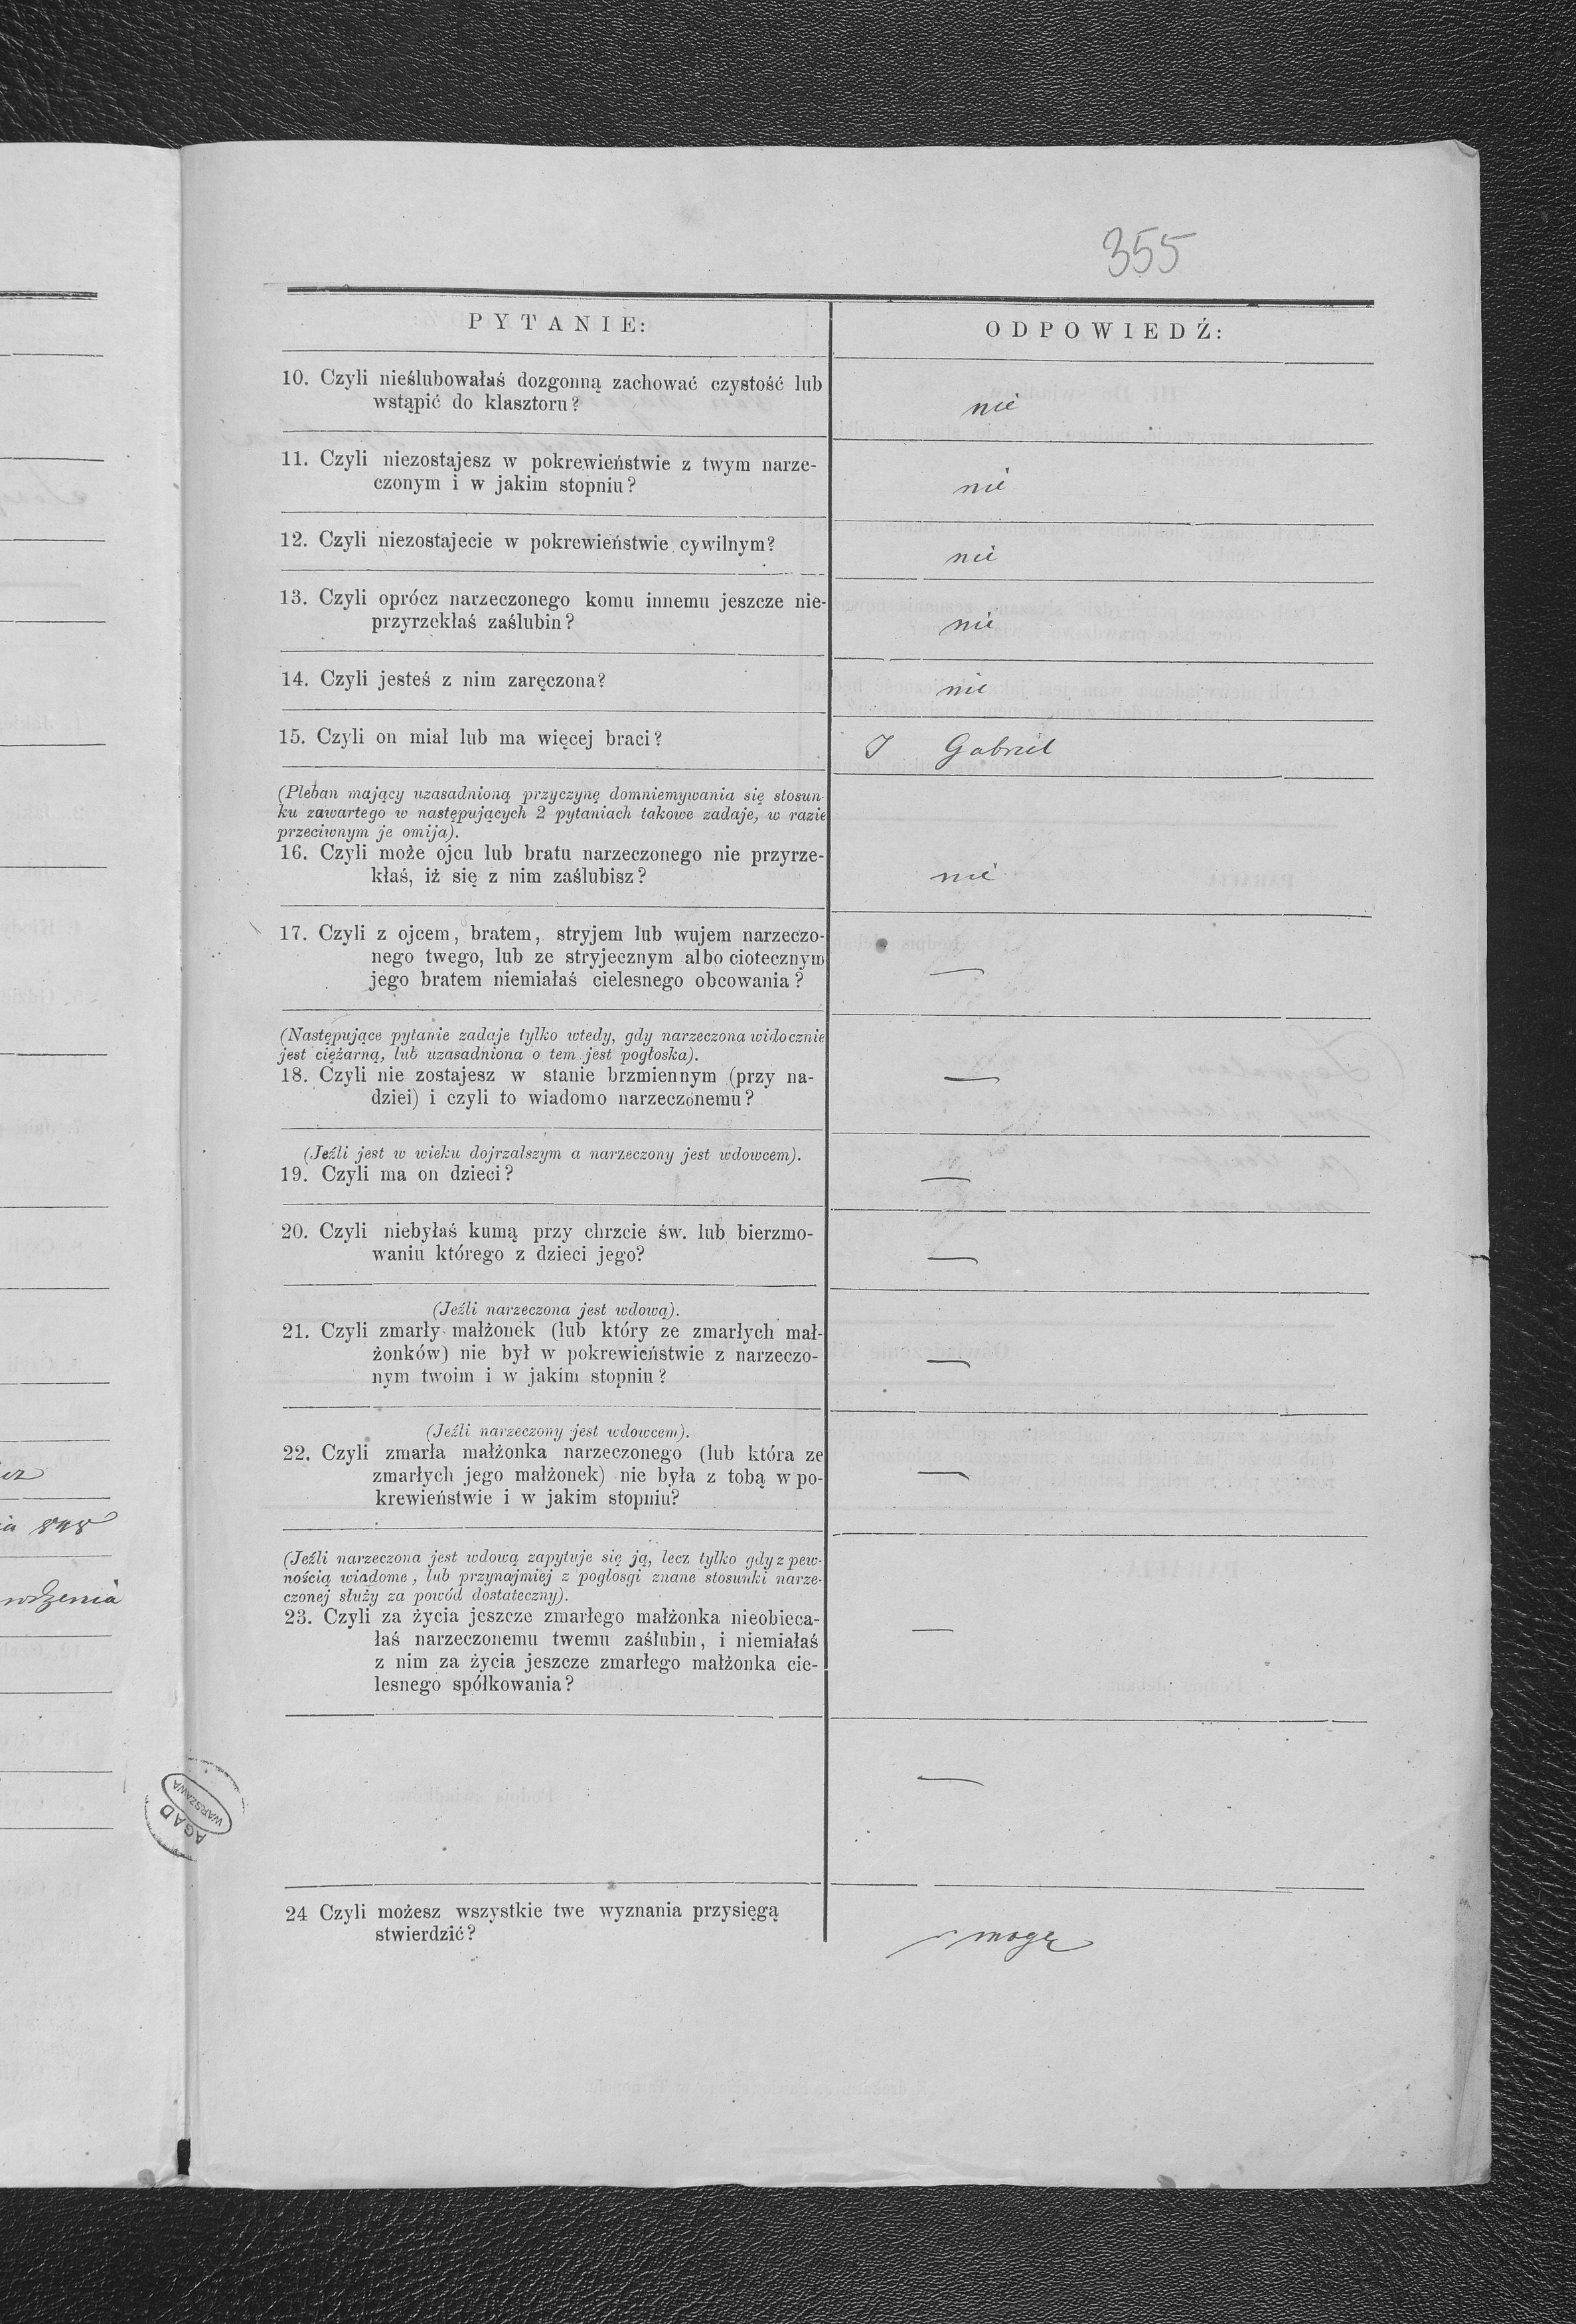 355
PYTANIE:
ODPOWIEDŹ:
10. Czyli nieślubowałaś dozgonną zachować czystość lub
wstąpić do klasztoru?
nie
11. Czyli niezostajesz w pokrewieństwie z twym narze-
czonym i w jakim stopniu?
nie
12. Czyli niezostajecie w pokrewieństwie cywilnym?
nie
13. Czyli oprócz narzeczonego komu innemu jeszcze nie-
przyrzekłaś zaślubin?
nie
14. Czyli jesteś z nim zaręczona?
nie
15. Czyli on miał lub ma więcej braci?
Gabriel
(Pleban mający uzasadnioną przyczynę domniemywania się stosun-
ku zawartego w następujących 2 pytaniach takowe zadaje, w razie
przeciwnym je omija).
16. Czyli może ojcu lub bratu narzeczonego nie przyrze-
kłaś, iż się z nim zaślubisz?
nie
17. Czyli z ojcem, bratem, stryjem lub wujem narzeczo-
nego twego, lub ze stryjecznym albo ciotecznym
jego bratem niemiałaś cielesnego obcowania?
—
(Następujące pytanie zadaje tylko wtedy, gdy narzeczona widocznie
jest ciężarną, lub uzasadniona o tem jest pogłoska).
18. Czyli nie zostajesz w stanie brzmiennym (przy na-
dziei) i czyli to wiadomo narzeczonemu?
—
(Jeźli jest w wieku dojrzalszym a narzeczony jest wdowcem).
19. Czyli ma on dzieci?
—
20. Czyli niebyłaś kumą przy chrzcie św. lub bierzmo-
waniu którego z dzieci jego?
—
(Jeźli narzeczona jest wdową).
21. Czyli zmarły małżonek (lub który ze zmarłych mał-
żonków) nie był w pokrewieństwie z narzeczo-
nym twoim i w jakim stopniu?
—
(Jeźli narzeczony jest wdowcem).
22. Czyli zmarła małżonka narzeczonego (lub która ze
zmarłych jego małżonek) nie była z tobą w po-
krewieństwie i w jakim stopniu?
—
(Jeźli narzeczona jest wdową zapytuje się ją, lecz tylko gdy z pew-
nością wiadome, lub przynajmiej z pogłosgi znane stosunki narze-
czonej służy za powód dostateczny).
23. Czyli za życia jeszcze zmarłego małżonka nieobieca-
łaś narzeczonemu twemu zaślubin, i niemiałaś
z nim za życia jeszcze zmarłego małżonka cie-
lesnego spółkowania?
—
—
24 Czyli możesz wszystkie twe wyznania przysięgą
stwierdzić?
mogę
AGAD
WARSZAWA